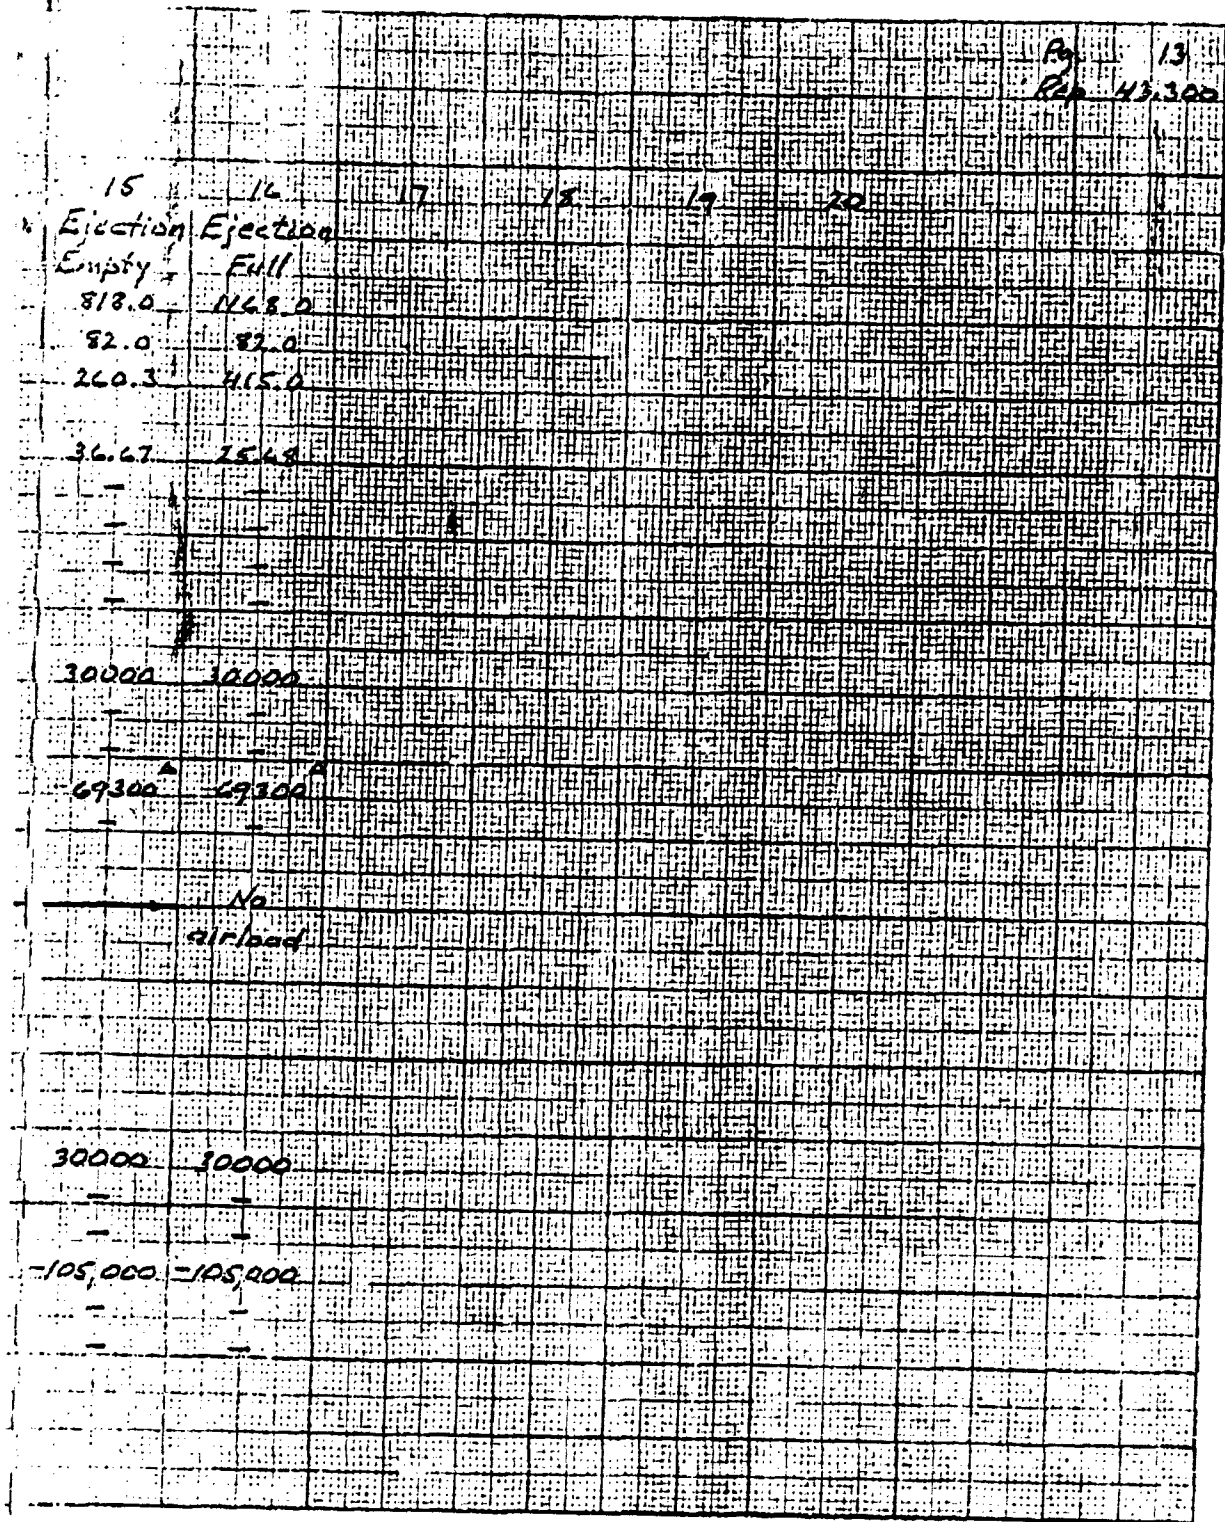 Pg 13
Rep 43.300
15 16 17 18 19 20
Ejection Ejection
Empty Full
818.0 1468.0
82.0 82.0
260.3 415.0
36.67 25.68
- -
- -
- -
- -
30000 30000
- -
- -
69300 69300
- -
No
airload
30000 30000
- -
- -
-105,000 -105,000
- -
- -